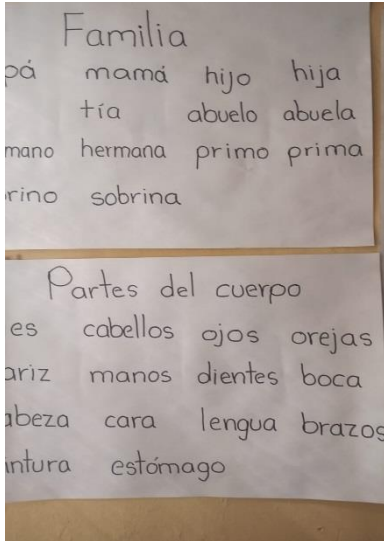 Familia
pá mamá hijo hija
tía abuelo abuela
mano hermana primo prima
rino sobrina
Partes del cuerpo
es cabellos ojos orejas
ariz manos dientes boca
abeza cara lengua brazos
intura estómago